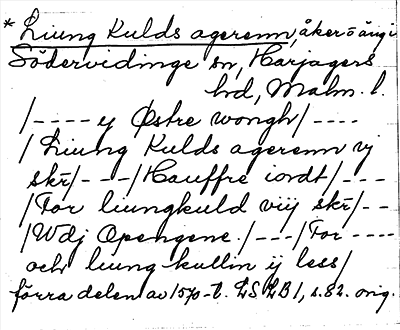 * Liung Kulds agerenn, åker o äng i
Södervidinge sn, Harjagers
hd, Malm. l.
/---- ej Østre wongh/----
/Liung Kulds agerenn vj
skr/---/Hauffre iordt/---
/For liungkuld viij skr/--
/Wdj Opengene./---/For ----
och liung kullin ij less/
förra delen av 1570-t. LSLB1, s. 82. orig.